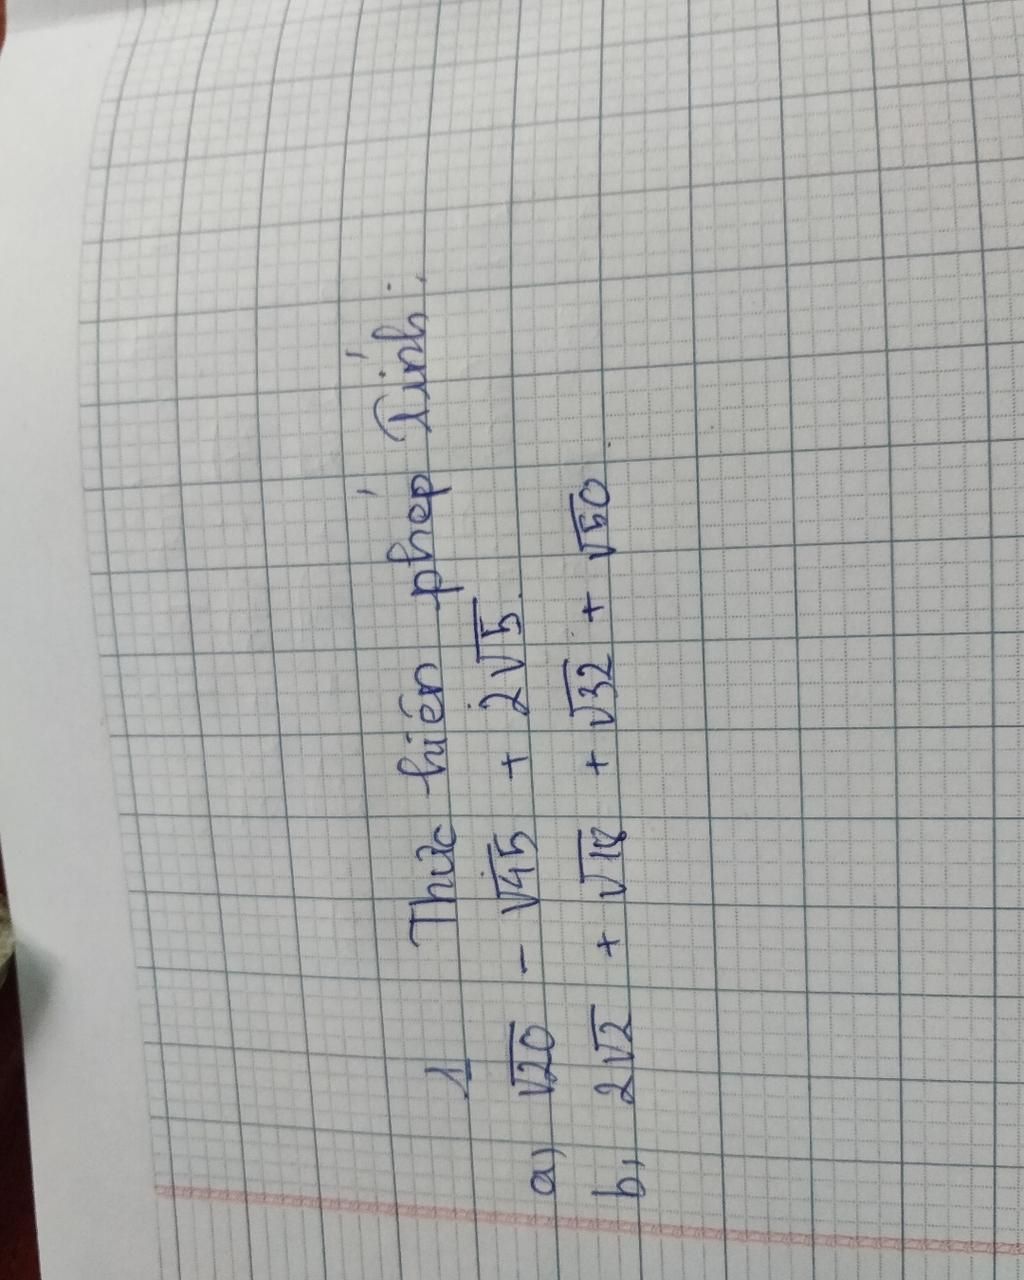 1 Thực hiện phép Tính:
a) √20 - √45 + 2√5.
b, 2√2 + √18 + √32 + √50